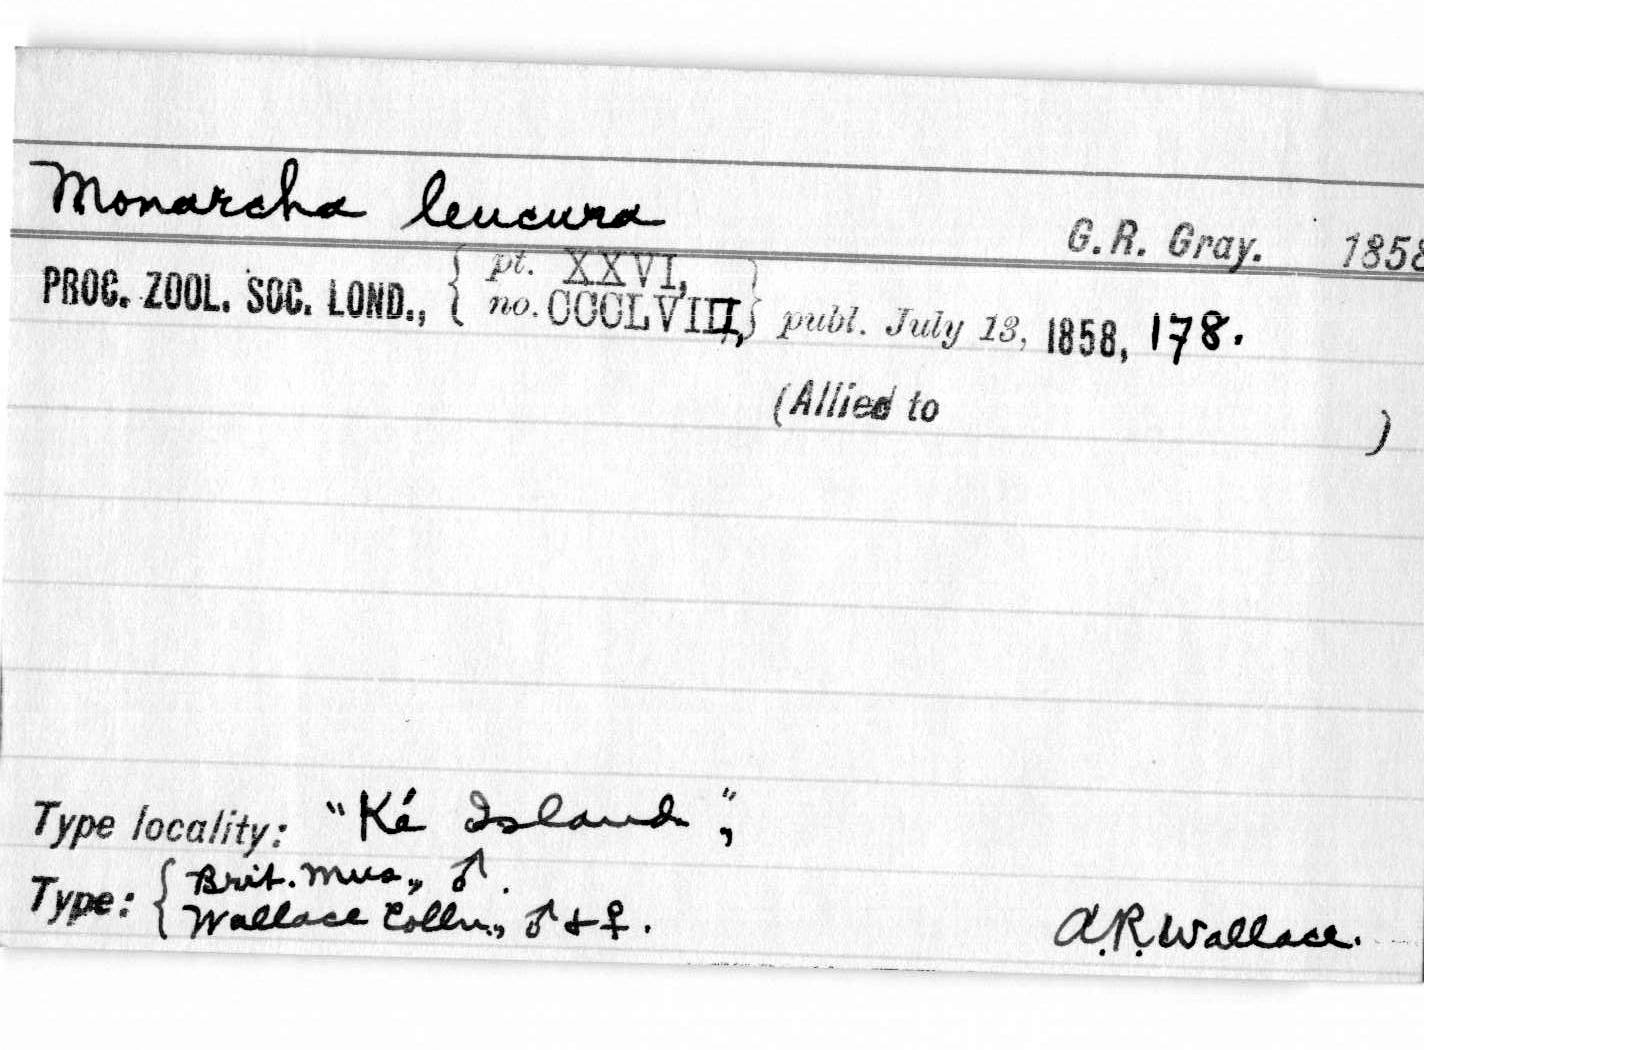 Monarcha leucura
G.R. Gray. 1858
PROC. ZOOL. SOC. LOND., { pt. XXVI, no. CCCLVIII, } publ. July 13, 1858, 178.
(Allied to )
Type locality: "Ké Island",
Type: { Brit. Mus., ♂.
Wallace Colln., ♂ + ♀.
A.R. Wallace.